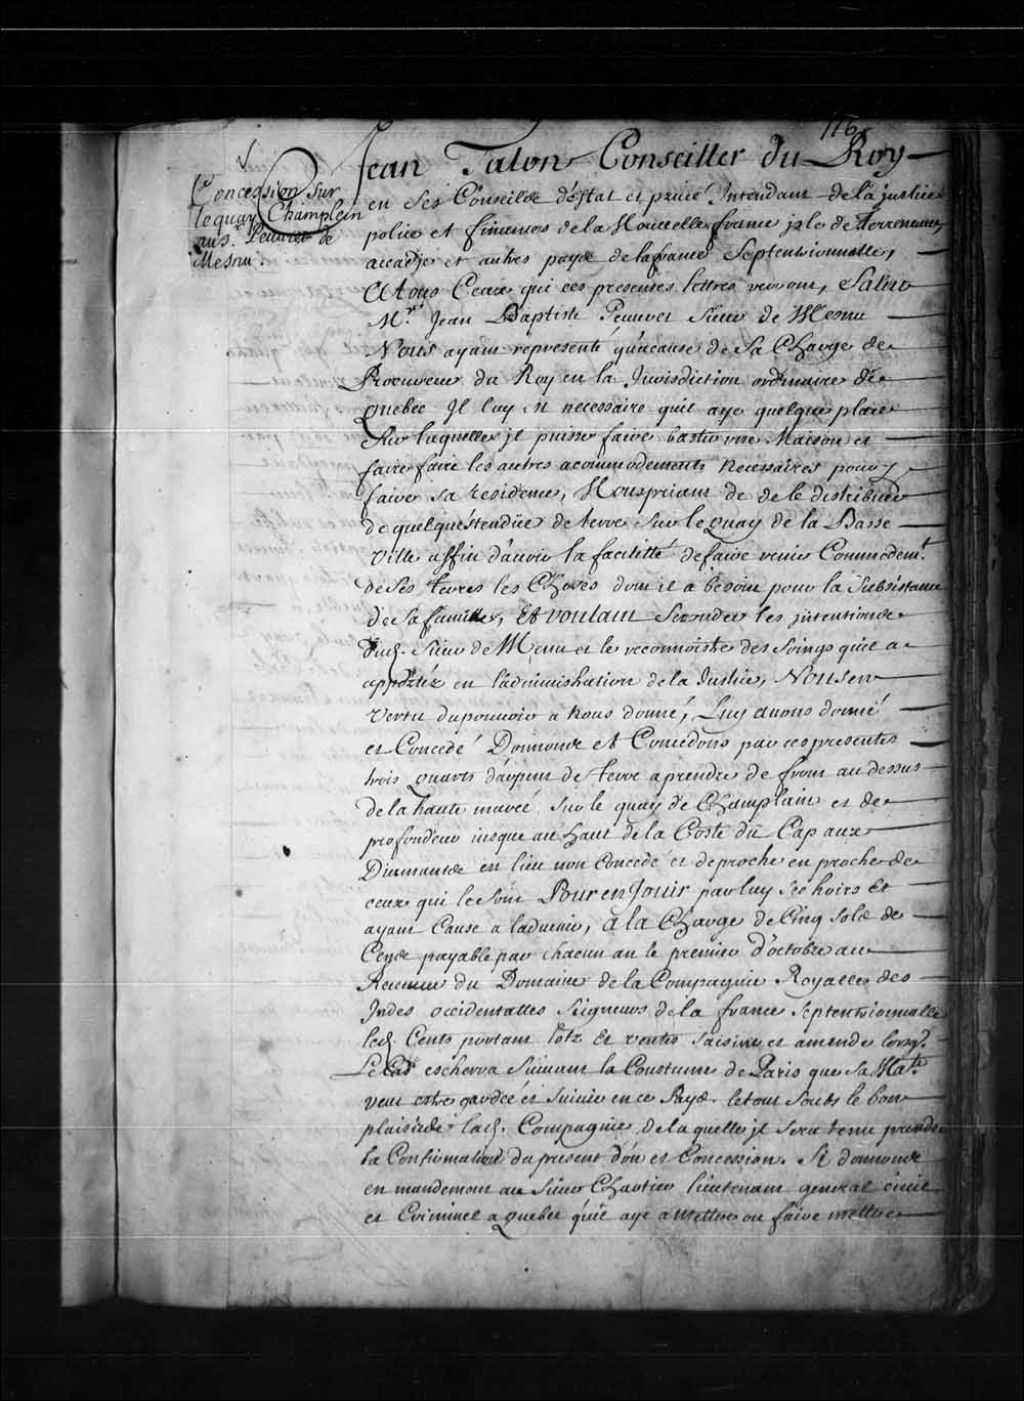 116
Concession sur
le quay Champlein
au Sr. Peuuret de
Mesnu.
Jean Talon Conseiller du Roy
en Ses Conseilz d'estat et priué Intendant de la justice
police et finances de la Nouuelle france isle de terreneuue,
accadye et autres payz de la france Septentrionnalle,
A tous Ceux qui ces presentes lettres verront, Salut
Mre. Jean Baptiste Peuuret Sieur de Mesnu
Nous ayant representé qu'acause de Sa Charge de
Procureur du Roy en la Jurisdiction ordinaire de
Quebec Il luy est necessaire quil aye quelque place
Sur laquelle jl puisse faire bastir une Maison et
faire faire les autres acommodements Necessaires pour y
faire sa residence, Nous priant de de le distribuer
de quelque estendüe de terre Sur le Quay de la Basse
Ville affin d'auoir la facilitté de faire venir Commodemt.
de Ses terres les Choses dont il a besoin pour la Subsistance
de Sa famille, Et voulant Seconder les jntentions
dud. Sieur de Mesnu et le reconnoistre des Soings quil a
apportéz en l'administration de la Justice, Nous en
Vertu du pouuoir a Nous donné, Luy auons donné
et Concedé Donnons et Concedons par ces presentes
trois Quarts d'arpent de terre a prendre de front au dessus
de la haute mareé Sur le quay de Champlain et de
profondeur jusque au haut de la Coste du Cap aux
Diamants en lieu non Concedé et de proche en proche de
ceux qui le Sont Pour en Jouir par luy Ses hoirs Et
ayant Cause a laduenir, a la Charge de Cinq Solz de
Cens payable par chacun an le premier d'octobre au
Receueur du Domaine de la Compagnie Royalle des
Indes occidentalles Seigneurs de la france Septentrionnalle
led. Cents portant lotz Et ventes saisine et amende lorsq.
Le Cas escherra Suiuant la Coustume de Paris que Sa Maté.
veut estre gardeé et Suiuie en ce Payz. le tout Soubs le bon
plaisir de lad. Compagnie de laquelle jl Sera tenu prendre
la Confirmation du present don et Concession. Si donnons
en mandement au Sieur Chartier lieutenant general ciuil
et Criminel a Quebec qu'il aye a Mettre ou faire mettre